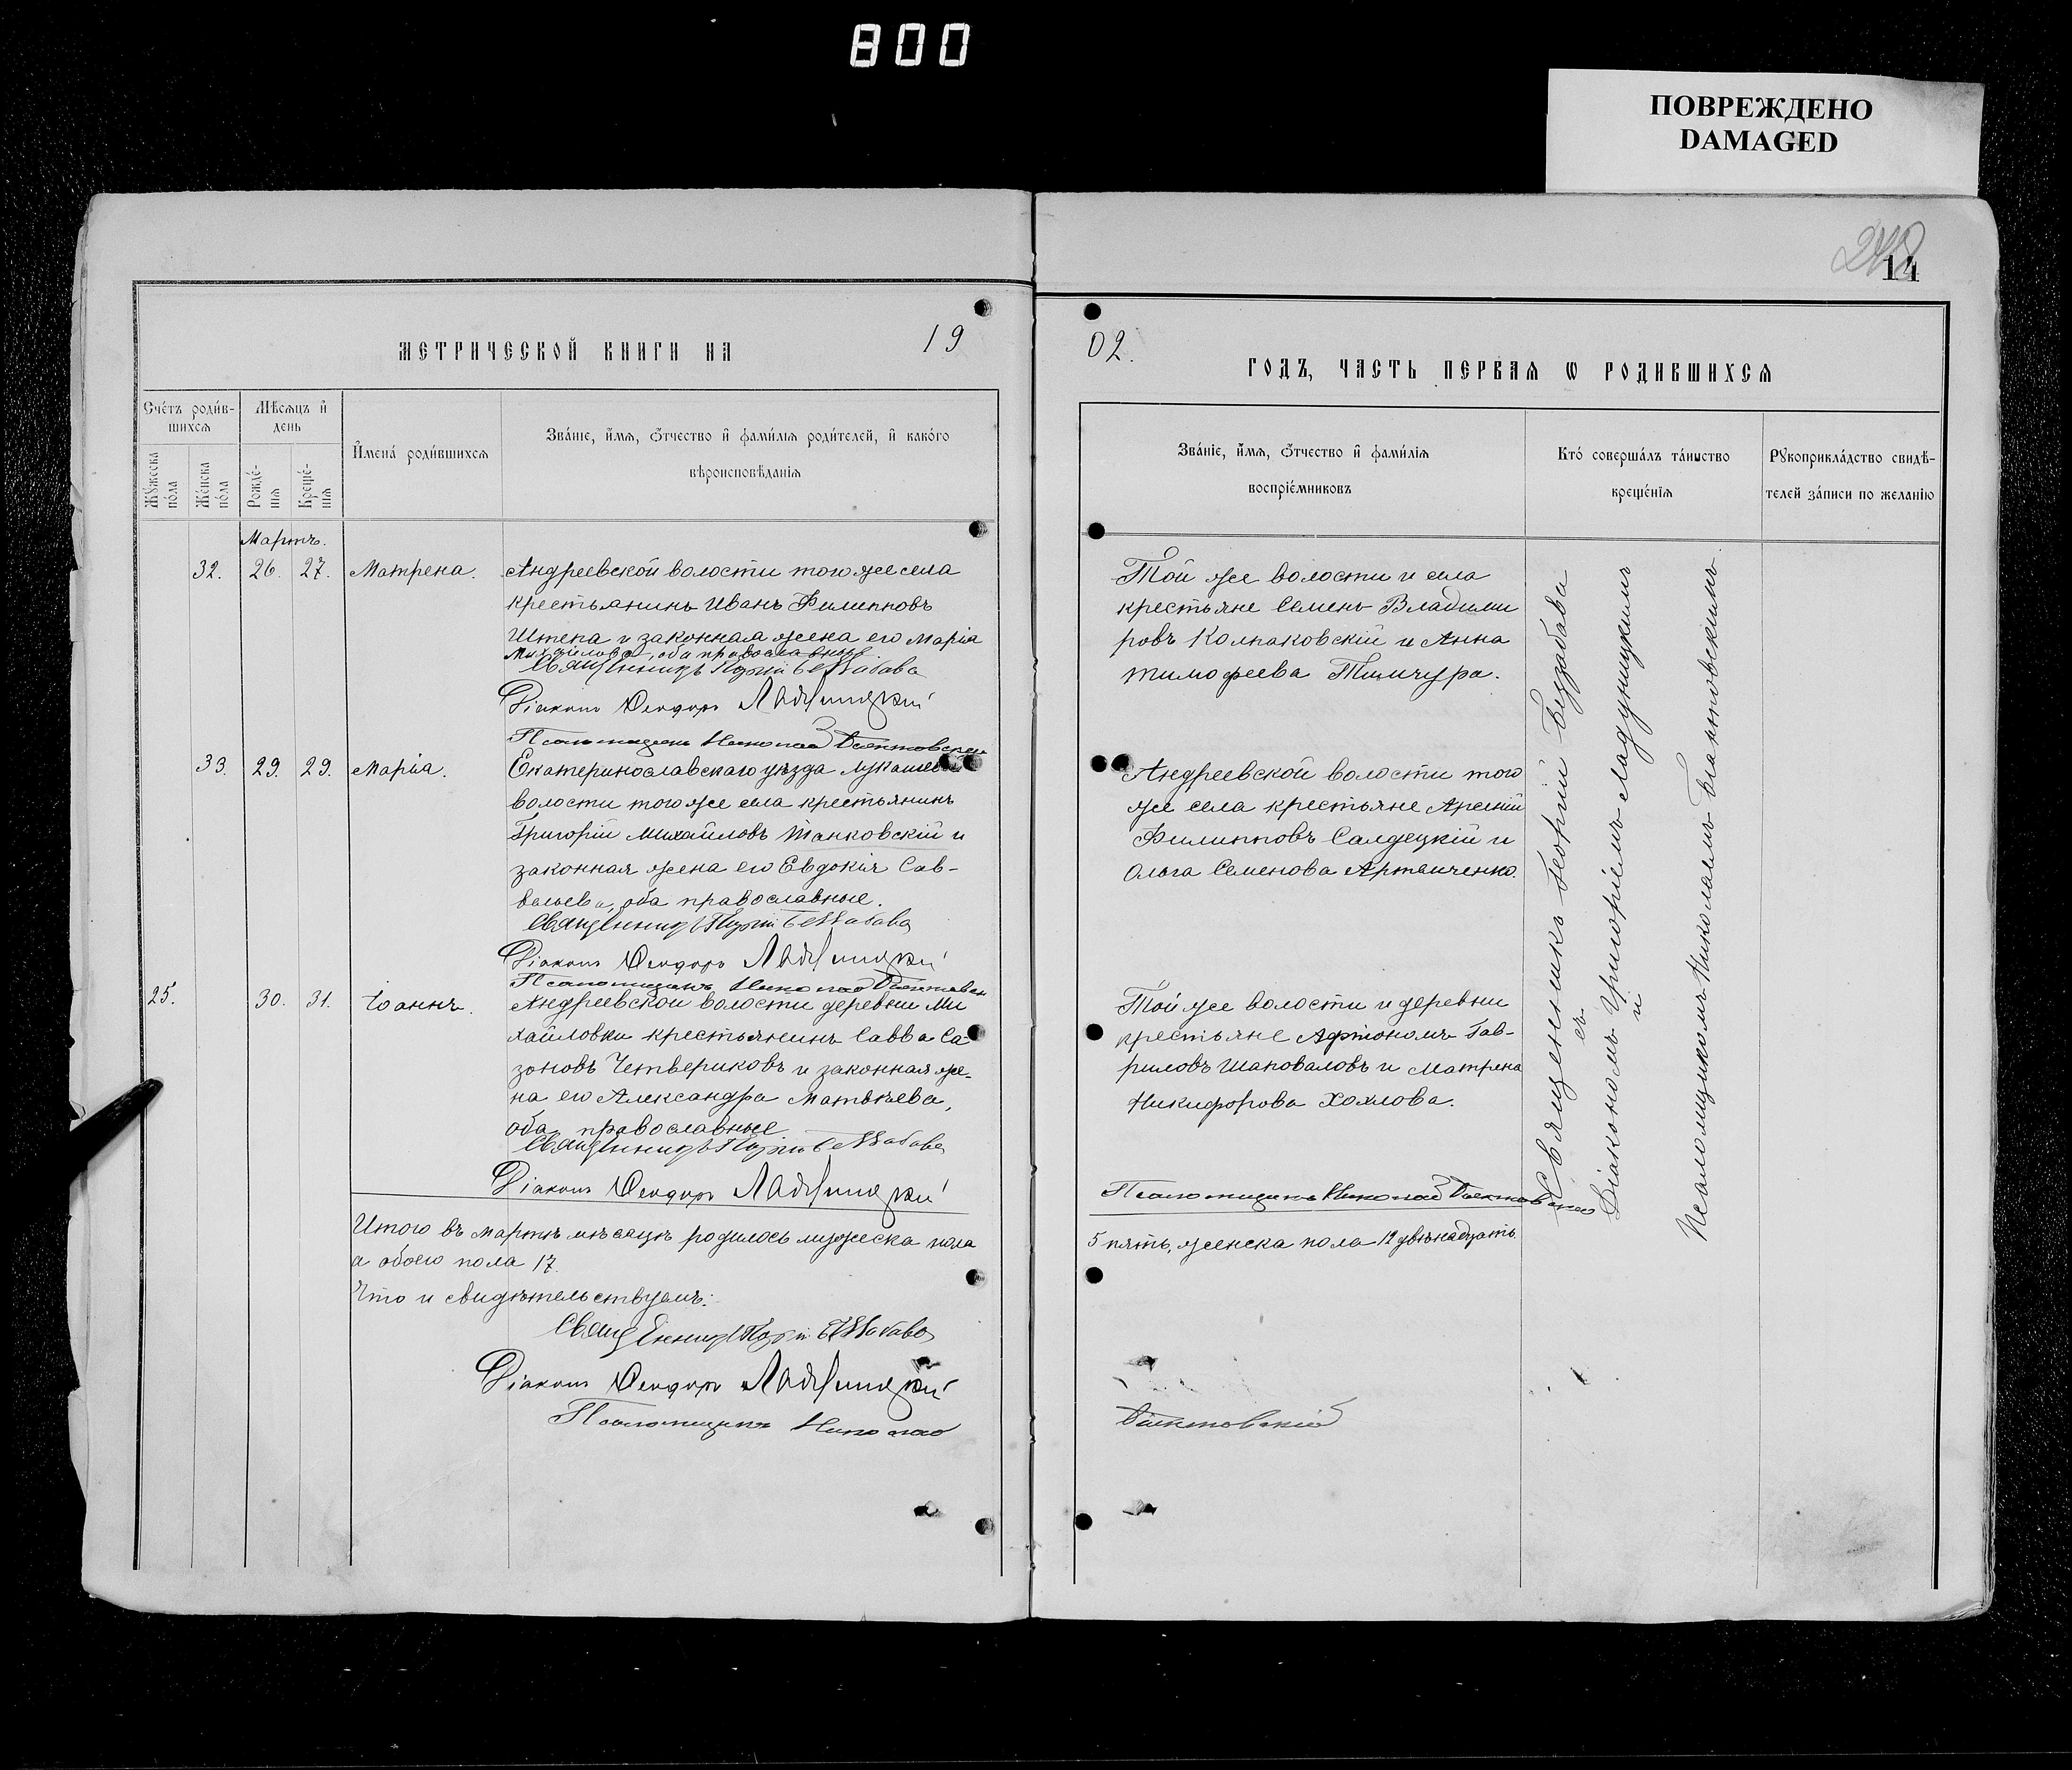 800
ПОВРЕЖДЕНО
DAMAGED
14
МЕТРИЧЕСКОЙ КНИГИ НА
19
Счётъ родив-
шихся
Мѣсяцъ и
день
Имена родившихся
Званіе, имя, отчество и фамилія родителей, и какого
вѣроисповѣданія
Мужеска
пола
Женска
пола
Рожде-
нія
Креще-
нія
Мартъ.
32. 26. 27. Матрена. Андреевской волости того же села
крестьянинъ Иванъ Филипповъ
Штепа и законная жена его Марія
Михайлова, оба православные
Священникъ
Діаконъ Ѳеодоръ
Псаломщикъ Николай
33. 29. 29. Марія. Екатеринославскаго уѣзда Лукашевской
волости того же села крестьянинъ
Григорій Михайловъ Танковскій и
законная жена его Евдокія Сав-
вальева, оба православные.
Священникъ
Діаконъ Ѳеодоръ
Псаломщикъ Николай
25. 30. 31. Іоаннъ. Андреевской волости деревни Ми
хайловки крестьянинъ Савва Са-
зоновъ Четвериковъ и законная же-
на его Александра Матвѣева,
оба православные
Священникъ
Діаконъ Ѳеодоръ
Итого въ мартѣ мѣсяцѣ родилось мужеска пола
а обоего пола 17.
Что и свидѣтельствуемъ:
Священникъ
Діаконъ Ѳеодоръ
Псаломщикъ Николай
02.
ГОДЪ, ЧАСТЬ ПЕРВАЯ Ѡ РОДИВШИХСЯ
Званіе, имя, отчество и фамилія
воспріемниковъ
Кто совершалъ таинство
крещенія
Рукоприкладство свидѣ-
телей записи по желанію
Той же волости и села
крестьяне Семенъ Владими
ровъ Колпаковскій и Анна
Тимофеева Тимчура.
Андреевской волости того
же села крестьяне Арсеній
Филипповъ Салдецкій и
Ольга Семенова Артемченко.
Той же волости и деревни
крестьяне Афтономъ Гав-
риловъ Шаповаловъ и Матрена
Никифорова Хохлова.
Псаломщикъ Николай
5 пять, женска пола 12 двѣнадцать.
Священникъ Георгій Беззабава
съ
Діакономъ Григоріемъ Ладуницкимъ
и
Псаломщикомъ Николаемъ